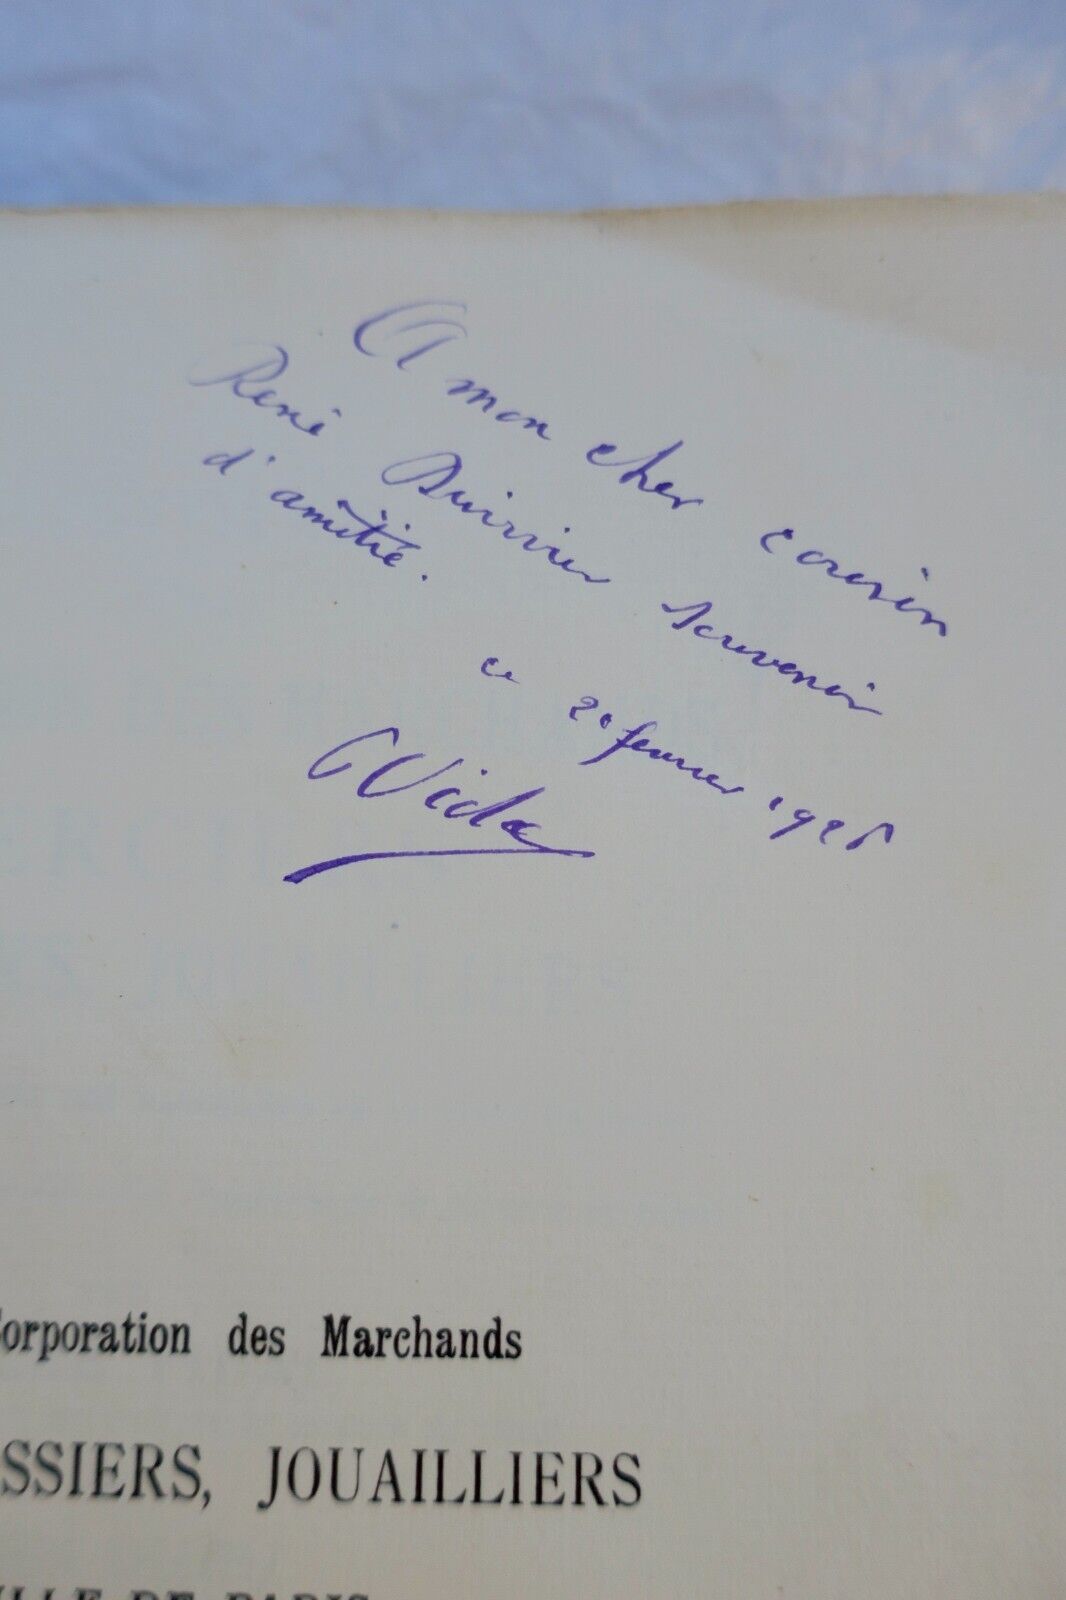 A mon cher cousin
René souvenir
d'amitié.
ce 20 fevrier 1926
GVidal
Corporation des Marchands
SSIERS, JOUAILLIERS
ILLE DE PARIS